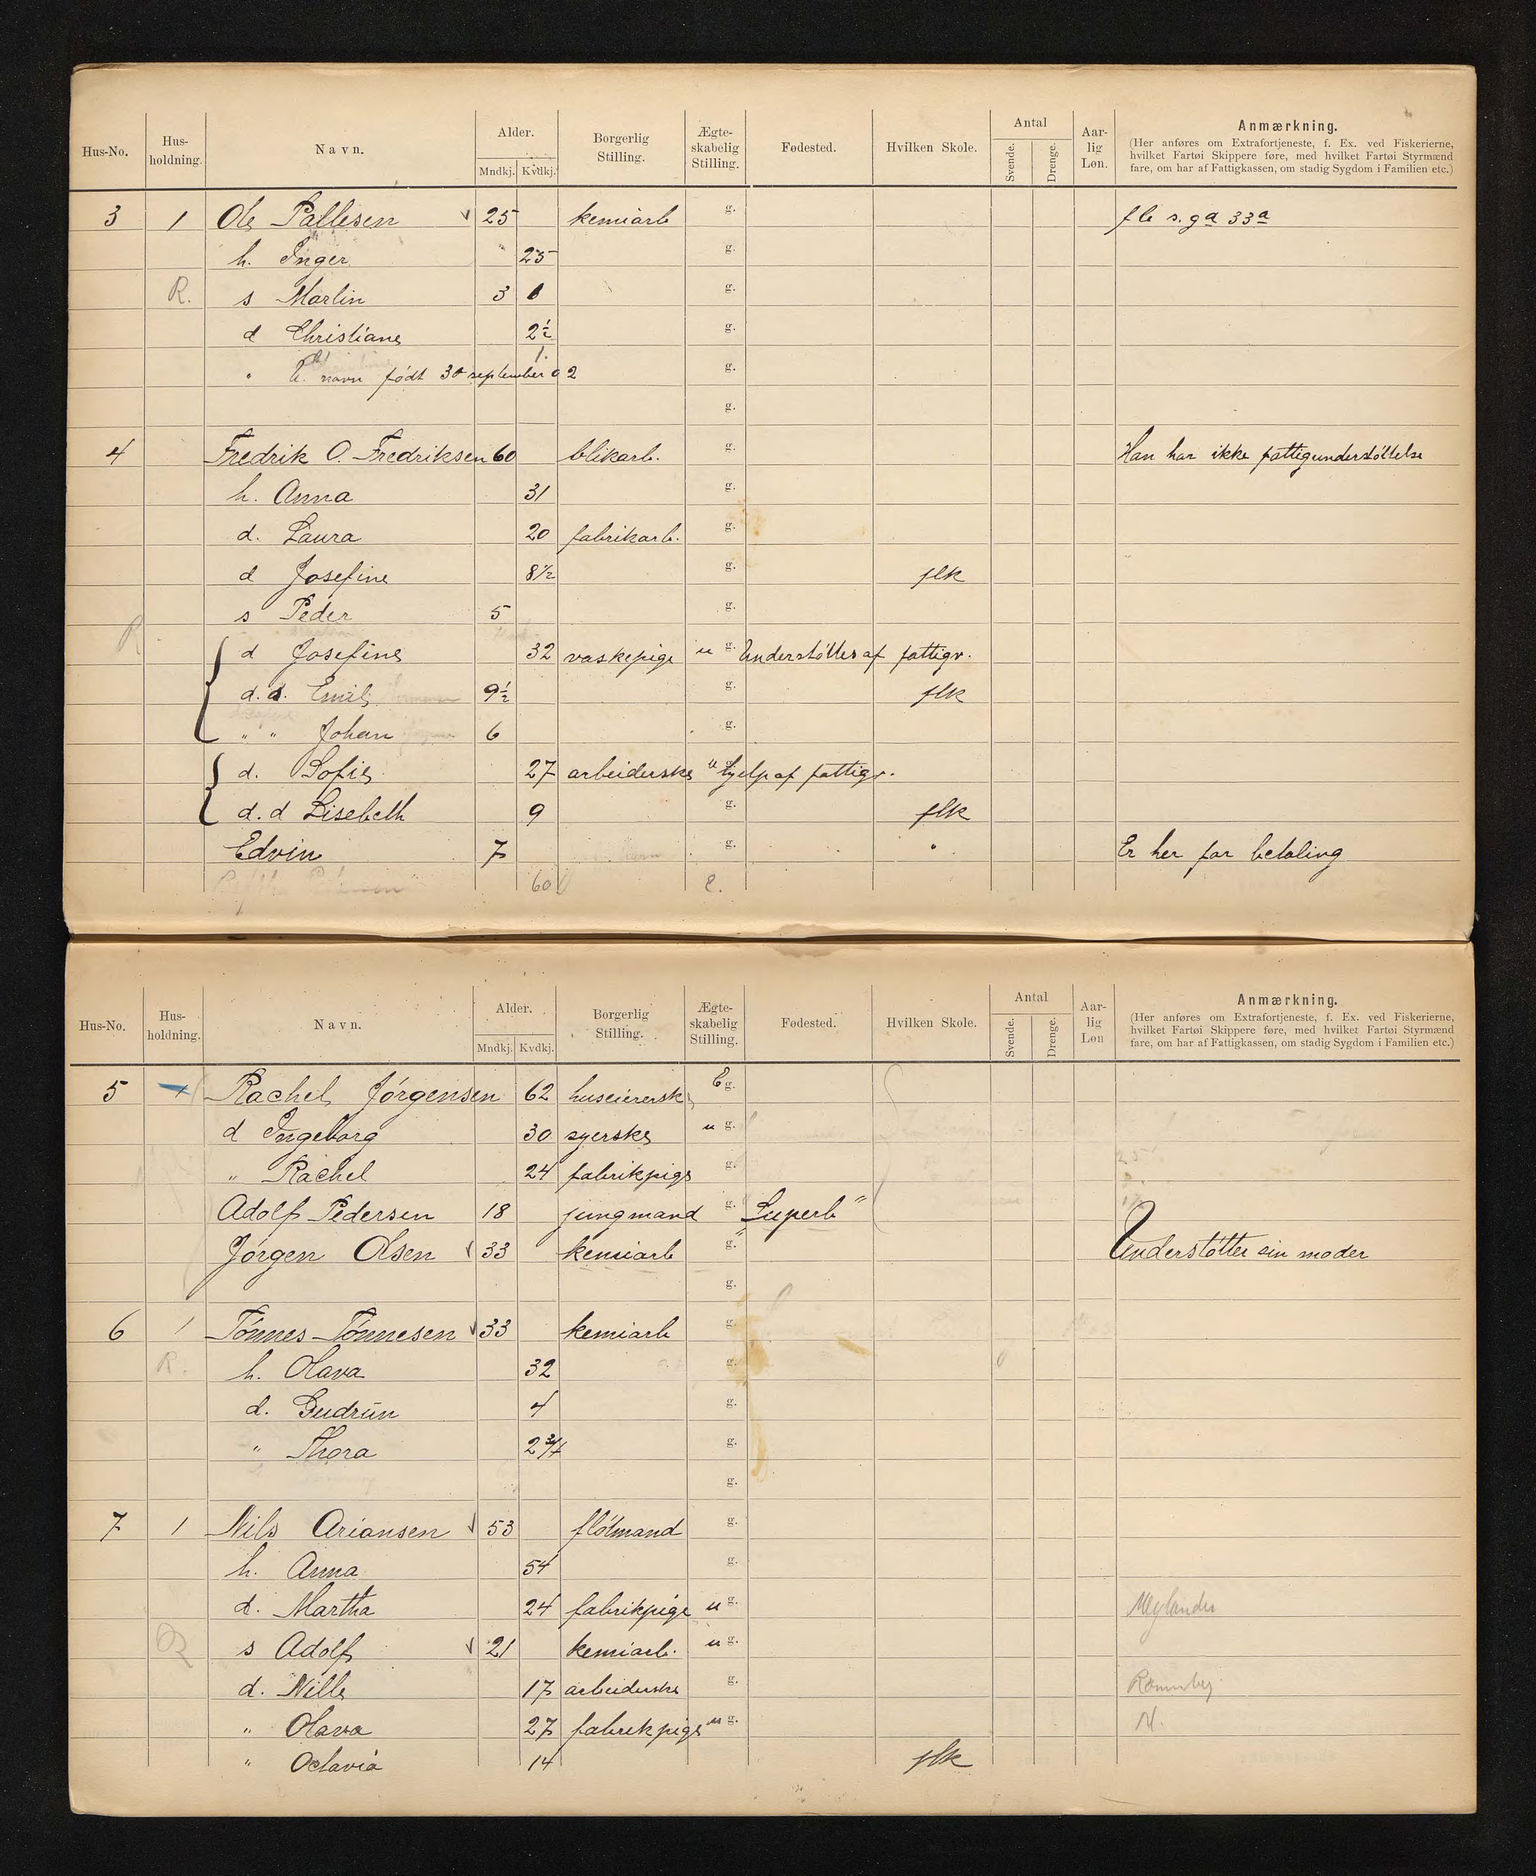 Hus-No. Hus-holdning. Navn. Alder. Mndkj. Kvdkj. Borgerlig Stilling. Ægte-skabelig Stilling. Fødested. Hvilken Skole. Antal Svende. Drenge. Aar-lig Løn. Anmærkning.
(Her anføres om Extrafortjeneste, f. Ex. ved Fiskerierne,
hvilket Fartøi Skippere føre, med hvilket Fartøi Styrmænd
fare, om har af Fattigkassen, om stadig Sygdom i Familien etc.)
3 1 Ole Pallesen 25 kemiarb g. s. ga 33a
h. Inger 25 g.
R. s Martin 3 g.
d Christiane 2½ g.
" U. navn født 30 september 02 1. g.
g.
4 Fredrik O. Fredriksen 60 blikarb. g. Han har ikke fattigunderstöttelse
h. Anna 31 g.
d. Laura 20 fabrikarb. g.
d Josefine 8½ g. flk
s Peder 5 g.
R d Josefine 32 vaskepige u g. Understöttes af fattigv.
d.s. Emil 9½ g. flk
" " Johan 6 g.
d. Sofie 27 arbeiderske u g. hjelp af fattigv.
d.d Lisebeth 9 g. flk
Edvin 7 g. " Er her for betaling
60 e.
Hus-No. Hus-holdning. Navn. Alder. Mndkj. Kvdkj. Borgerlig Stilling. Ægte-skabelig Stilling. Fødested. Hvilken Skole. Antal Svende. Drenge. Aar-lig Løn Anmærkning.
(Her anføres om Extrafortjeneste, f. Ex. ved Fiskerierne,
hvilket Fartøi Skippere føre, med hvilket Fartøi Styrmænd
fare, om har af Fattigkassen, om stadig Sygdom i Familien etc.)
5 Rachel Jörgensen 62 huseierske E g.
d Ingeborg 30 syerske u g.
" Rachel 24 fabrikpige g.
Adolf Pedersen 18 jungmand g. "Superb"
Jörgen Olsen 33 kemiarb g. Understötter sin moder
g.
6 1 Tönnes Tönnesen 33 kemiarb g.
R. h. Olava 32 g.
d. Gudrün 4 g.
" Thora 2¾ g.
g.
7 1 Nils Ariansen 53 flötmand g.
h. Anna 54 g.
d. Martha 24 fabrikpige u g.
R s Adolf 21 kemiarb. u g.
d. Nille 17 arbeiderske g.
" Olava 27 fabrikpige u g. N.
" Octavia 14 flk